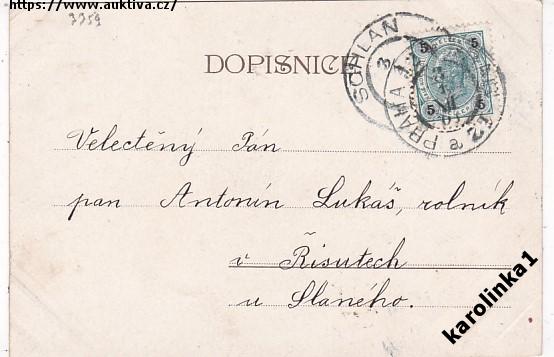 https://www.auktiva.cz/
3359
DOPISNICE
SCHLAN
3
PRAHA 1
5 5
5 5
Velectěný Pán
pan Antonín Lukáš, rolník
v Řisutech
u Slaného.
karolinka1